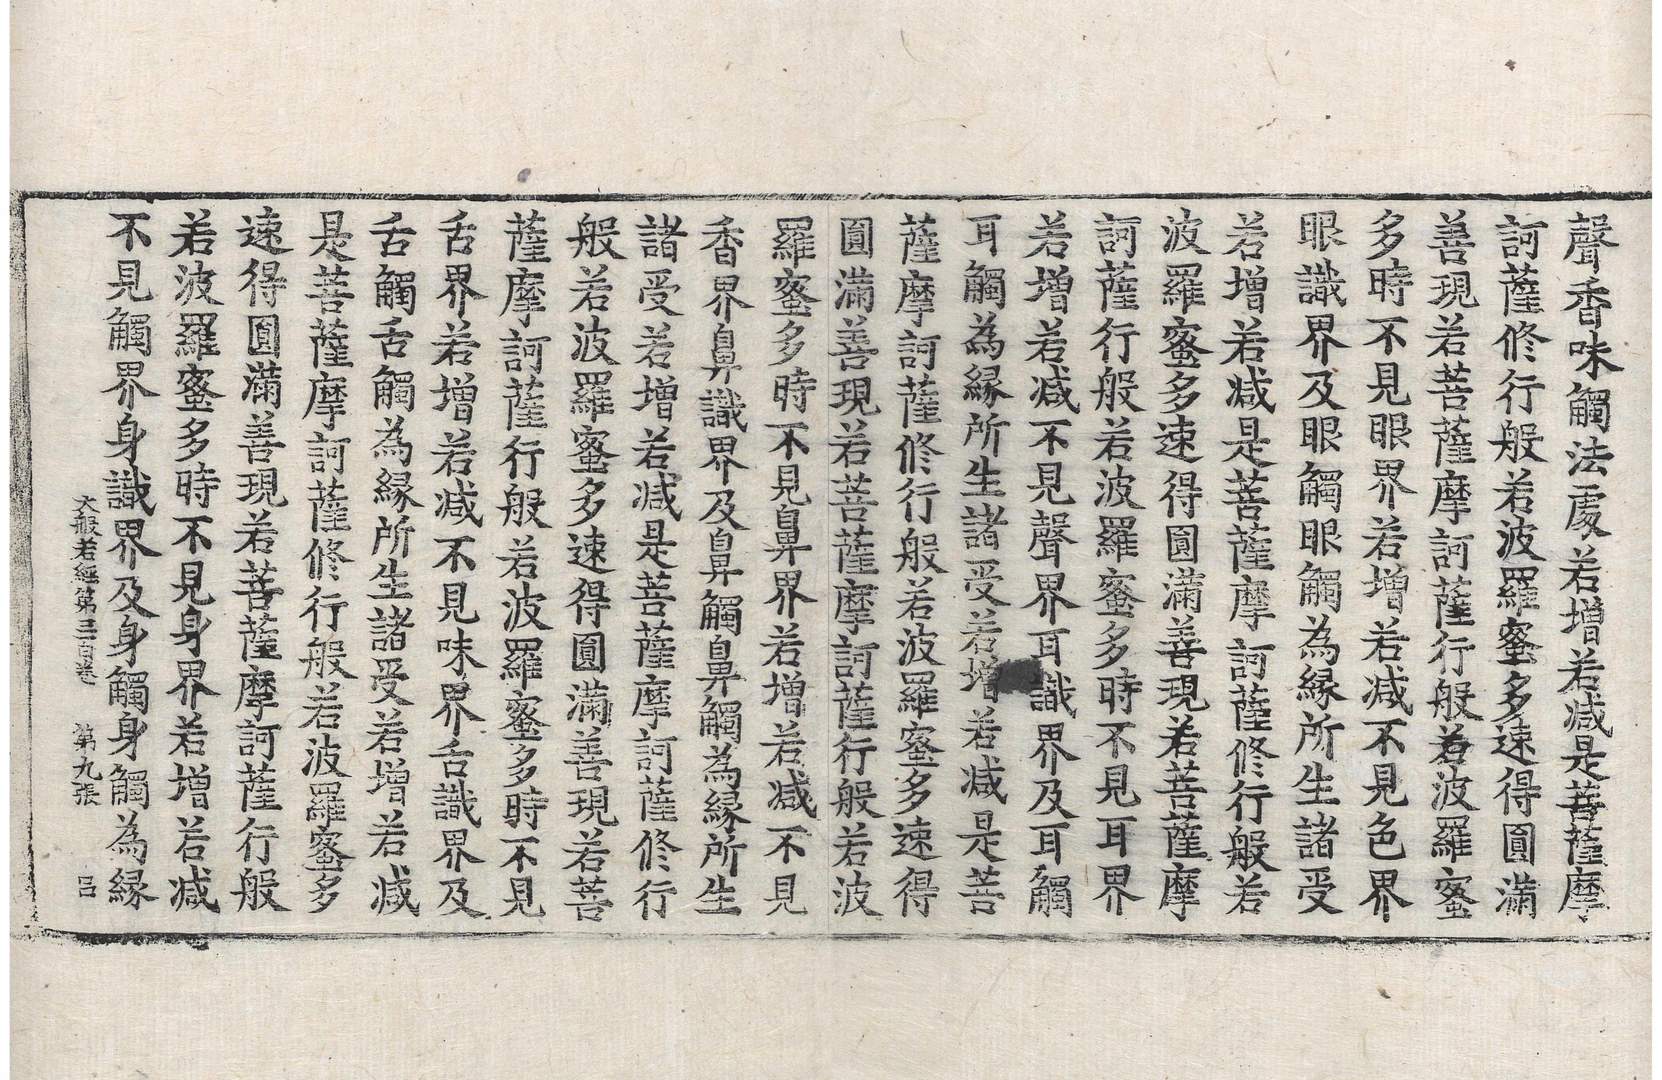 聲香味觸法處若增若减是菩薩摩
訶薩修行般若波羅蜜多速得圓滿
善現若菩薩摩訶薩行般若波羅蜜
多時不見眼界若增若减不見色界
眼識界及眼觸眼觸為縁所生諸受
若增若减是菩薩摩訶薩修行般若
波羅蜜多速得圓滿善現若菩薩摩
訶薩行般若波羅蜜多時不見耳界
若增若减不見聲界耳識界及耳觸
耳觸為縁所生諸受若增若减是菩
薩摩訶薩修行般若波羅蜜多速得
圓滿善現若菩薩摩訶薩行般若波
羅蜜多時不見鼻界若增若减不見
香界鼻識界及鼻觸鼻觸為縁所生
諸受若增若减是菩薩摩訶薩修行
般若波羅蜜多速得圓滿善現若菩
薩摩訶薩行般若波羅蜜多時不見
舌界若增若减不見味界舌識界及
舌觸舌觸為縁所生諸受若增若减
是菩薩摩訶薩修行般若波羅蜜多
速得圓滿善現若菩薩摩訶薩行般
若波羅蜜多時不見身界若增若减
不見觸界身識界及身觸身觸為縁
大般若經第三百卷 第九張 呂